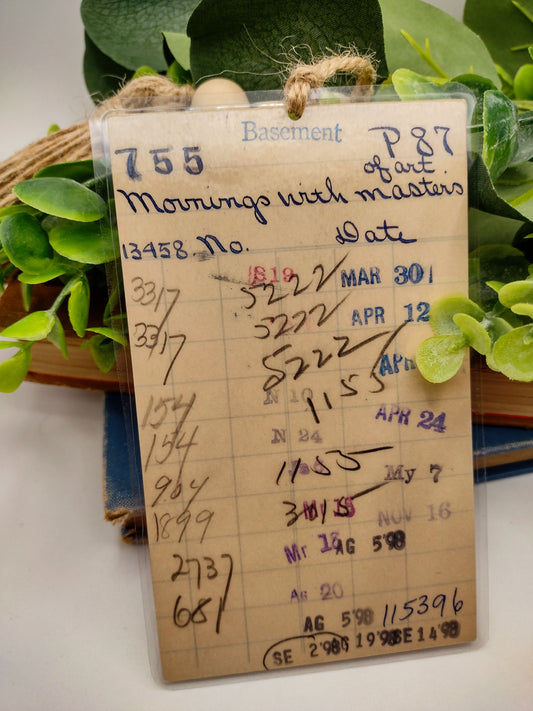 Basement
755 P87
of art
Mornings with masters
13458. No. Date
3317 S19 5222 MAR 30
3317 5222 APR 12
5222
154 N 10 1155 APR 24
154 N 24
904 1155 My 7
1899 3015 NOV 16
Mr 13 AG 5'98
2737 AG 20
681 AG 5'98 115396
SE 2'98 19'98 SE 14'98